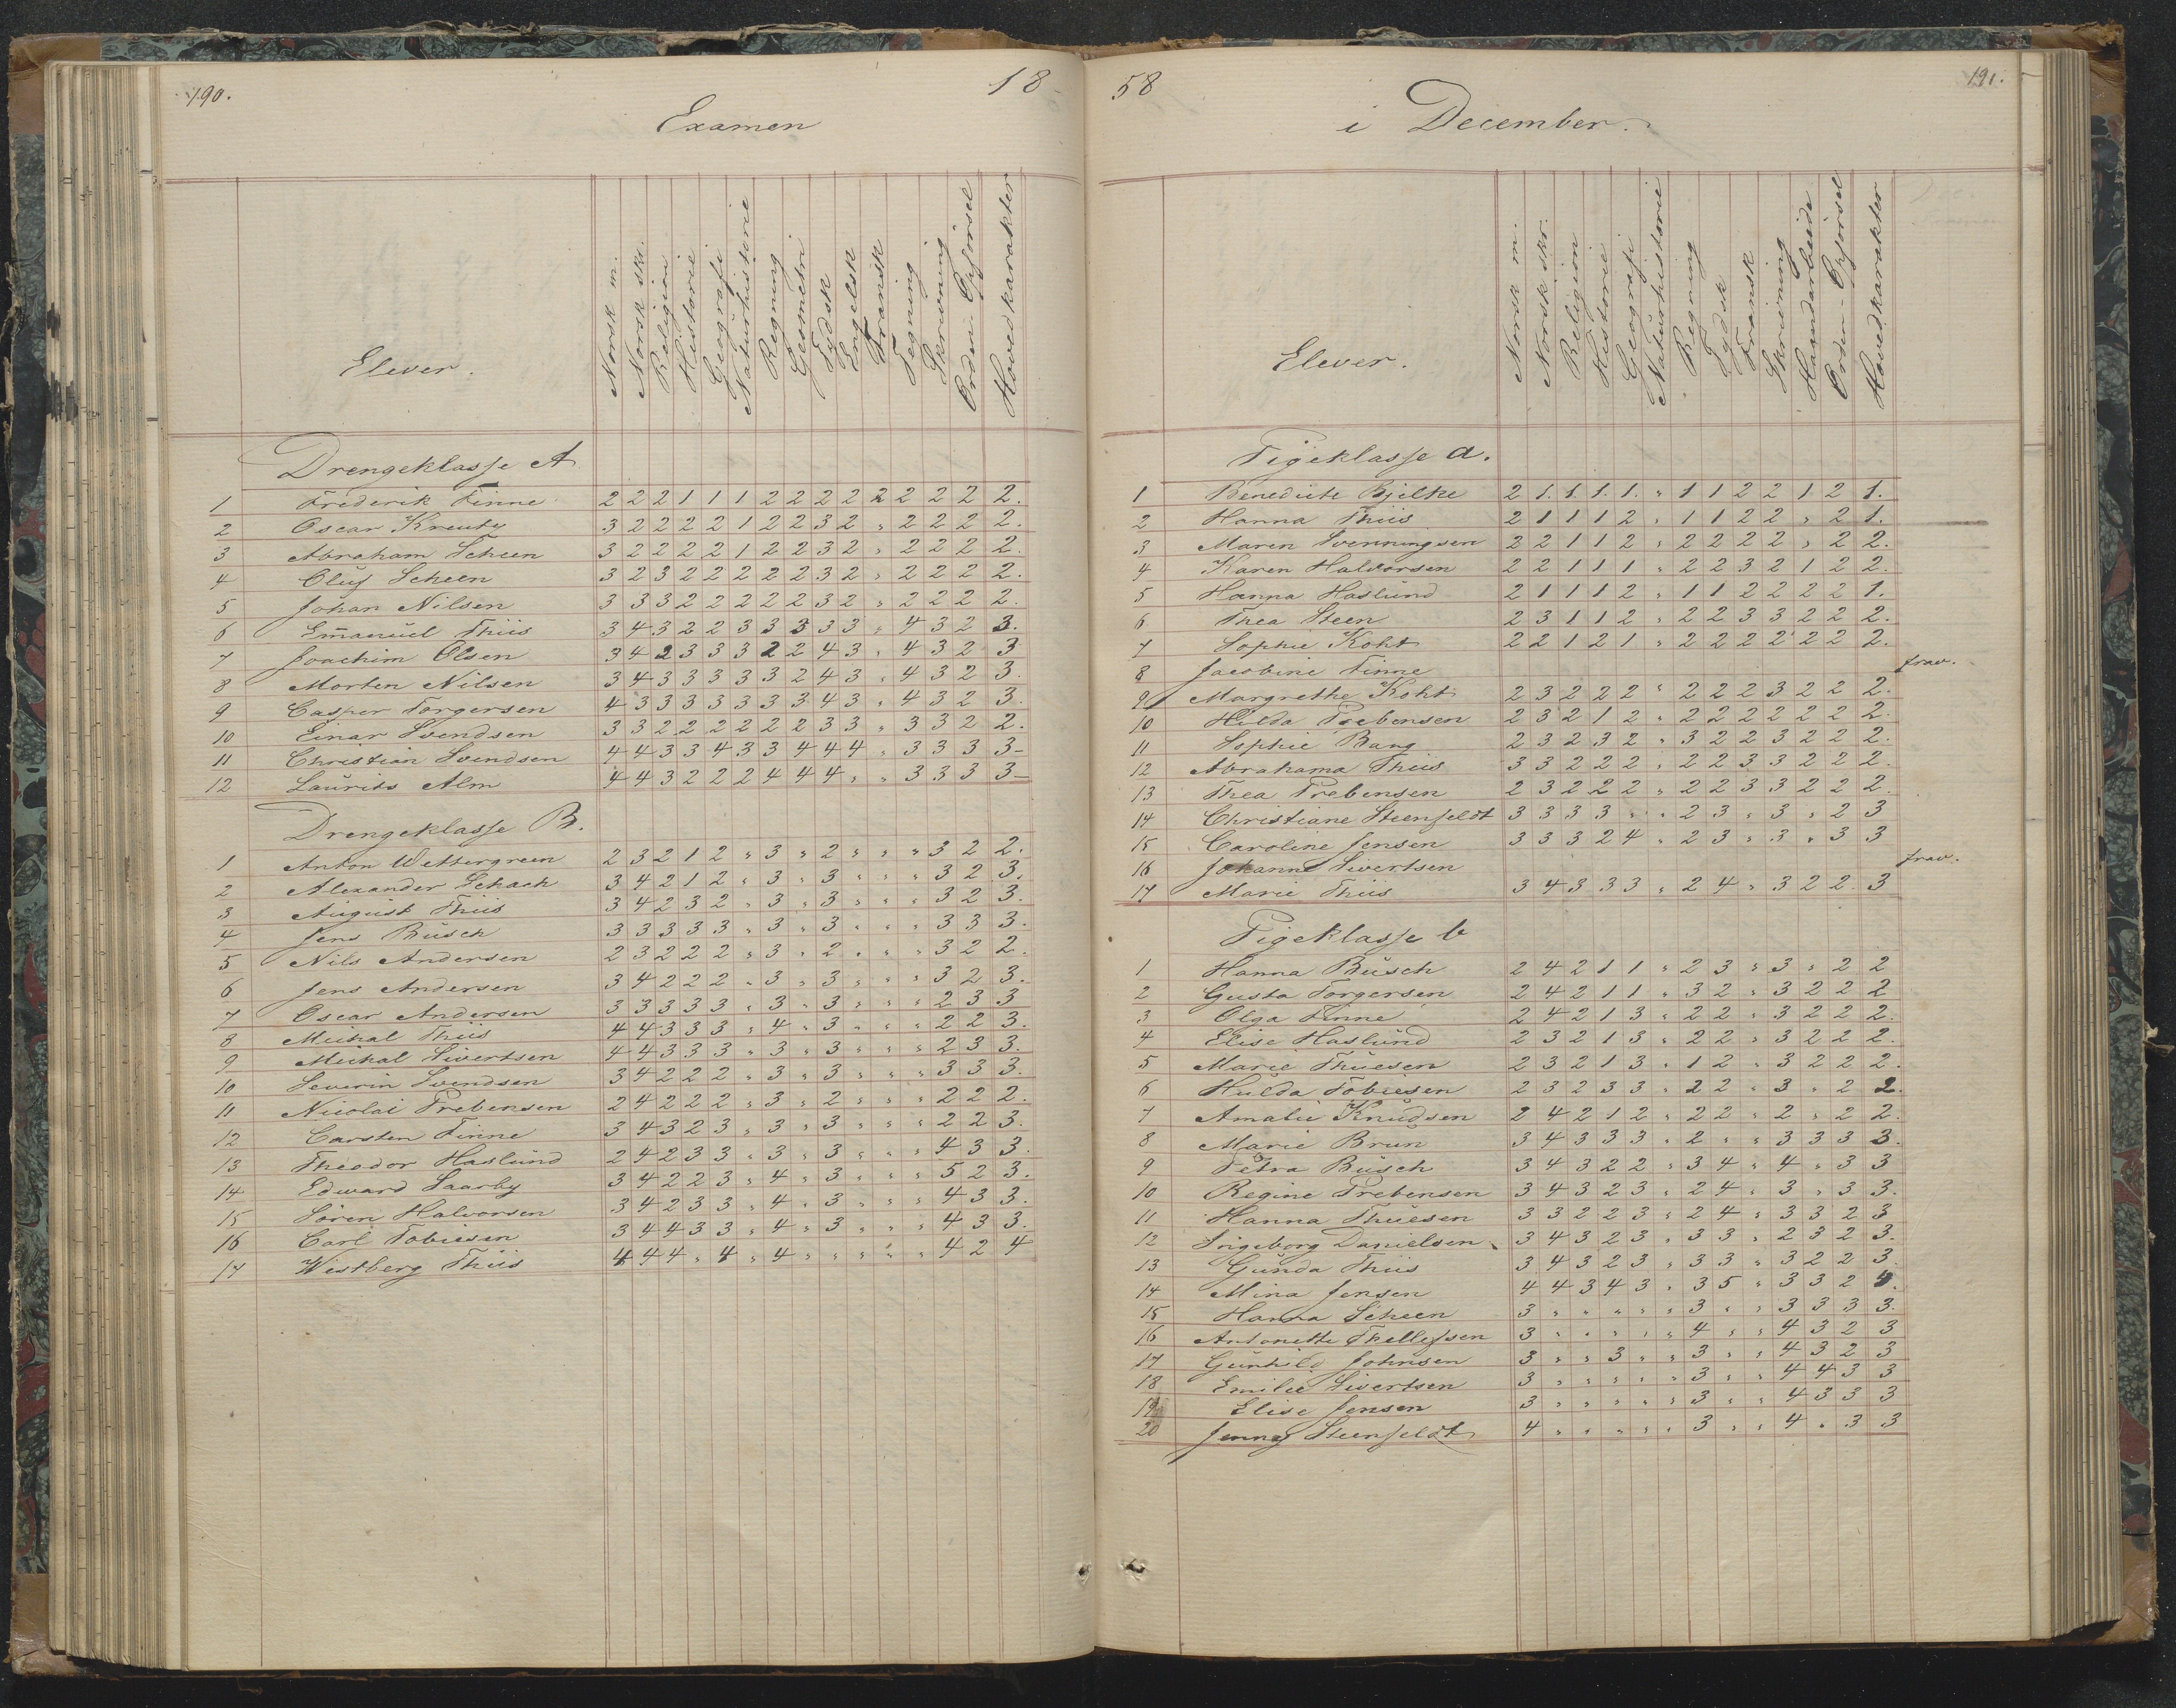 190.
18
Examen
Elever.
Norsk m.
Norsk skr.
Religion
Historie
Geografi
Naturhistorie
Regning
Geometri
Tydsk
Engelsk
Fransk
Tegning
Skrivning
Orden - Opførsel
Hovedkarakter
Drengeklasse A
1 Frederik Finne 2 2 2 1 1 1 2 2 2 2 2 2 2 2 2.
2 Oscar Kreutz 3 2 2 2 2 1 2 2 3 2 " 2 2 2 2.
3 Abraham Scheen 3 2 2 2 2 1 2 2 3 2 " 2 2 2 2.
4 Oluf Scheen 3 2 3 2 2 2 2 2 3 2 " 2 2 2 2.
5 Johan Nilsen 3 3 3 2 2 2 2 2 3 2 " 2 2 2 2.
6 Em̄anuel Thiis 3 4 3 2 2 3 3 3 3 3 " 4 3 2 3.
7 Joachim Olsen 3 4 2 3 3 3 2 2 4 3 " 4 3 2 3
8 Morten Nilsen 3 4 3 3 3 3 3 2 4 3 " 4 3 2 3.
9 Casper Torgersen 4 3 3 3 3 3 3 3 4 3 " 4 3 2 3.
10 Einar Svendsen 3 3 2 2 2 2 2 2 3 3 " 3 3 2 2.
11 Christian Svendsen 4 4 3 3 4 3 3 4 4 4 " 3 3 3 3-
12 Laurits Alm 4 4 3 2 2 2 4 4 4 " " 3 3 3 3-
Drengeklasse B.
1 Anton Wettergreen 2 3 2 1 2 " 3 " 2 " " " 3 2 2.
2 Alexander Schach 3 4 2 1 2 " 3 " 3 " " " 3 2 3.
3 August Thiis 3 4 2 3 2 " 3 " 3 " " " 3 2 3.
4 Jens Busch 3 3 3 3 3 " 3 " 3 " " " 3 3 3.
5 Nils Andersen 2 3 2 2 2 " 3 " 2 " " " 3 2 2.
6 Jens Andersen 3 4 2 2 2 " 3 " 3 " " " 3 2 3.
7 Oscar Andersen 3 3 3 3 3 " 3 " 3 " " " 2 3 3
8 Michal Thiis 4 4 3 3 3 " 4 " 3 " " " 2 2 3.
9 Michal Sivertsen 4 4 3 3 3 " 3 " 3 " " " 2 3 3.
10 Severin Svendsen 3 4 2 2 2 " 3 " 3 " " " 3 3 3.
11 Nicolai Prebensen 2 4 2 2 2 " 3 " 2 " " " 2 2 2.
12 Carsten Finne 3 4 3 2 3 " 3 " 3 " " " 2 2 3.
13 Theodor Haslund 2 4 2 3 3 " 3 " 3 " " " 4 3 3.
14 Edward Saarby 3 4 2 2 3 " 4 " 3 " " " 5 2 3.
15 Søren Halvorsen 3 4 2 3 3 " 4 " 3 " " " 4 3 3.
16 Carl Tobiesen 3 4 4 3 3 " 4 " 3 " " " 4 3 3.
17 Westberg Thiis 4 4 4 " 4 " 4 " " " " " 4 2 4
58
191.
i December.
Elever.
Norsk m.
Norsk skr.
Religion
Historie
Geografi
Naturhistorie
Regning
Tydsk
Fransk
Skrivning
Haandarbeide
Orden - Opførsel
Hovedkarakter
Pigeklasse a.
1 Benedicte Bjelke 2 1. 1. 1. 1. " 1 1 2 2 1 2 1.
2 Hanna Thiis 2 1 1 1 2 " 1 1 2 2 " 2 1.
3 Maren Svenningsen 2 2 1 1 2 " 2 2 2 2 " 2 2.
4 Karen Halvorsen 2 2 1 1 1 " 2 2 3 2 1 2 2.
5 Hanna Haslund 2 1 1 1 2 " 1 1 2 2 2 2 1.
6 Thea Steen 2 3 1 1 2 " 2 2 3 3 2 2 2.
7 Sophie Koht 2 2 1 2 1 " 2 2 2 2 2 2 2.
8 Jacobine Finne frav.
9 Margrethe Koht 2 3 2 2 2 " 2 2 2 3 2 2 2.
10 Hilda Prebensen 2 3 2 1 2 " 2 2 2 2 2 2 2.
11 Sophie Bang 2 3 2 3 2 " 3 2 2 3 2 2 2.
12 Abrahama Thiis 3 3 2 2 2 " 2 2 3 3 2 2 2.
13 Thea Prebensen 2 3 2 2 2 " 2 2 3 3 2 2 2.
14 Christiane Steenfeldt 3 3 3 3 " " 2 3 " 3 " 2 3
15 Caroline Jensen 3 3 3 2 4 " 2 3 " 3 " 3 3
16 Johanne Sivertsen frav.
17 Marie Thiis 3 4 3 3 3 " 2 4 " 3 2 2. 3
Pigeklasse b
1 Hanna Busch 2 4 2 1 1 " 2 3 " 3 " 2 2
2 Gusta Torgersen 2 4 2 1 1 " 3 2 " 3 2 2 2
3 Olga Finne 2 4 2 1 3 " 2 2 " 3 2 2 2.
4 Elise Haslund 2 3 2 1 3 " 2 2 " 3 2 2 2.
5 Marie Thuesen 2 3 2 1 3 " 1 2 " 3 2 2 2.
6 Hulda Tobiesen 2 3 2 3 3 " 2 2 " 3 " 2 2.
7 Amalie Knudsen 2 4 2 1 2 " 2 2 " 2 " 2 2.
8 Marie Brun 3 4 3 3 3 " 2 " " 3 3 3 3.
9 Petra Busch 3 4 3 2 2 " 3 4 " 4 " 3 3
10 Regine Prebensen 3 4 3 2 3 " 2 4 " 3 " 3 3.
11 Hanna Thuesen 3 3 2 2 3 " 2 4 " 3 3 2 3
12 Ingeborg Danielsen 3 4 3 2 3 " 3 3 " 2 3 2 3.
13 Gunda Thiis 3 4 3 2 3 " 3 3 " 3 2 2 3.
14 Mina Jensen 4 4 3 4 3 " 3 5 " 3 3 2 4.
15 Hanna Scheen 3 " " " " " 3 " " 3 3 3 3.
16 Antonette Thellefsen 3 " " " " " 4 " " 4 3 2 3
17 Gunhild Johnsen 3 " " 3 " " 3 " " 4 3 2 3
18 Emilie Sivertsen 3 " " " " " 3 " " 4 4 3 3
19 Elise Jensen 3 " " " " " 3 " " 4 3 3 3
20 Jenney Steenfeldt 4 " " " " " 3 " " 4 " 3 3